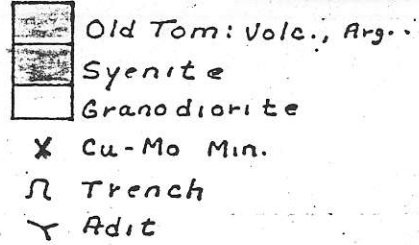 Old Tom: Volc., Arg..
Syenite
Granodiorite
Cu-Mo Min.
Trench
Adit